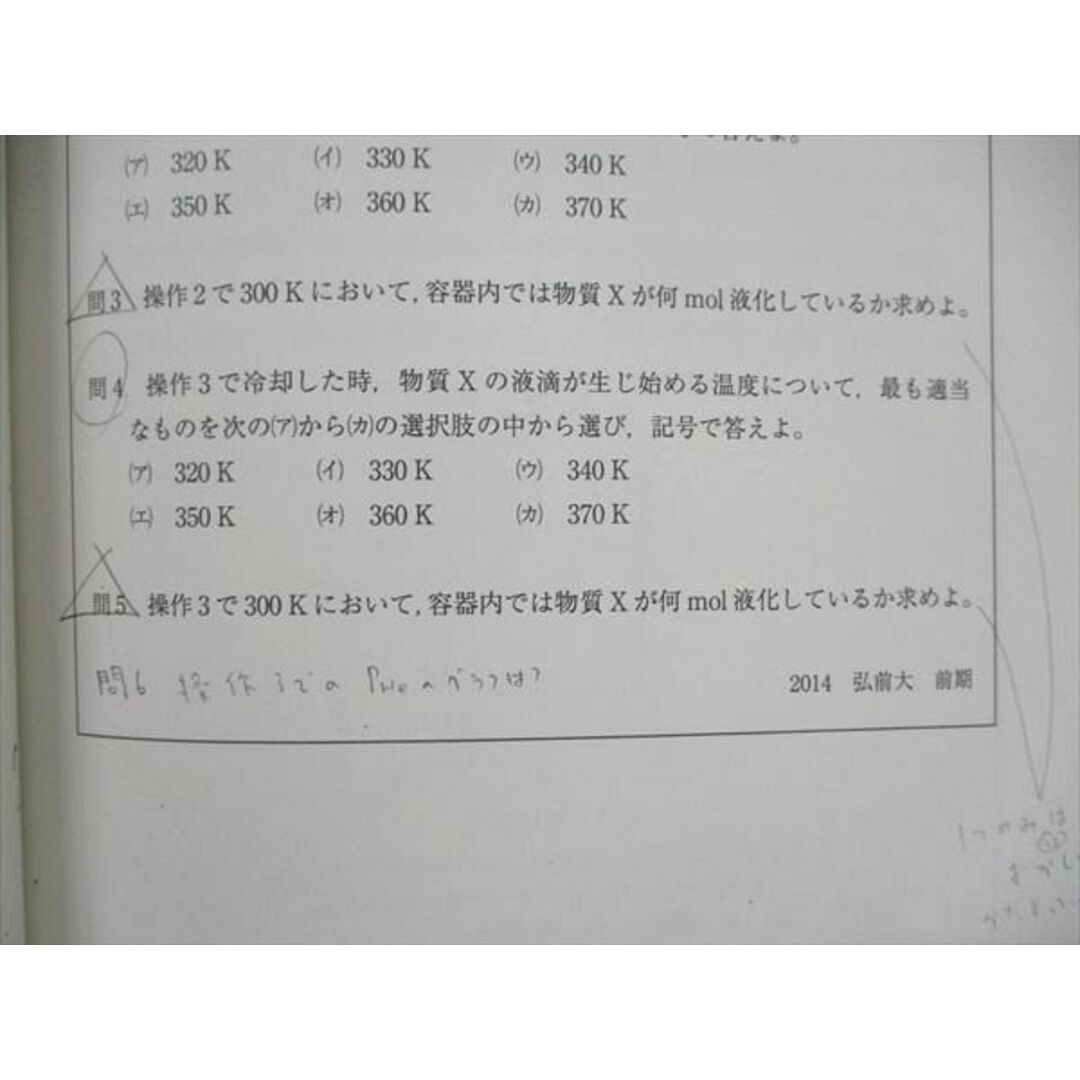 答えよ。
(ア) 320 K (イ) 330 K (ウ) 340 K
(エ) 350 K (オ) 360 K (カ) 370 K
問3 操作2で300 Kにおいて,容器内では物質Xが何mol液化しているか求めよ。
問4 操作3で冷却した時,物質Xの液滴が生じ始める温度について,最も適当
なものを次の(ア)から(カ)の選択肢の中から選び,記号で答えよ。
(ア) 320 K (イ) 330 K (ウ) 340 K
(エ) 350 K (オ) 360 K (カ) 370 K
問5 操作3で300 Kにおいて,容器内では物質Xが何mol液化しているか求めよ。
問6 操作3での PHeのグラフは?
2014 弘前大 前期
1つのみは